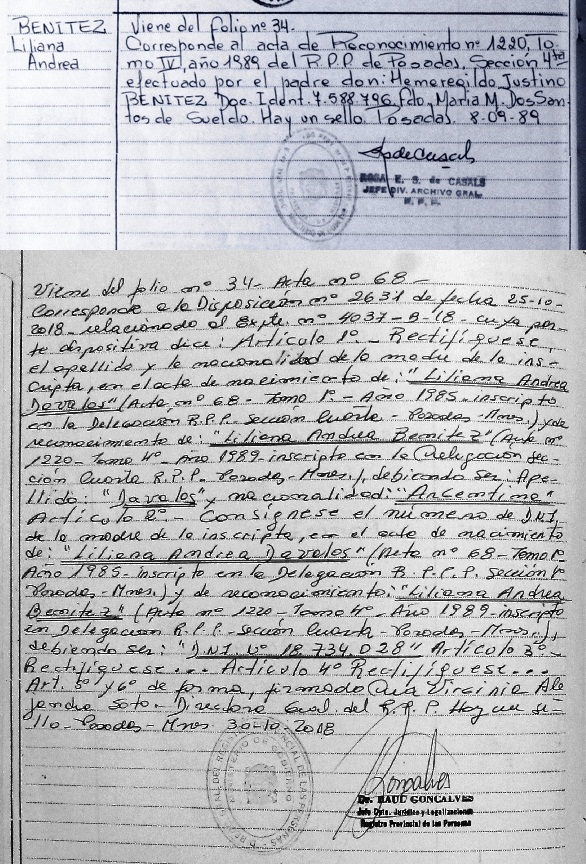 BENITEZ
Liliana
Andrea
Viene del folio nº 34.
Corresponde al acta de Reconocimiento nº 1220, To-
mo IV, año 1989 del R.P.P. de Posadas, Sección 4ta
efectuado por el padre don: Hemeregildo Justino
BENITEZ Doc. Ident. 7.588.796. Fdo. Maria M. DosSan-
tos de Sueldo. Hay un sello. Posadas. 8-09-89
ROSA E. S. de CASALS
JEFE DIV. ARCHIVO GRAL.
R. P. P.
Viene del folio nº 34- Acta nº 68-
Corresponde a la Disposición nº 2631 de fecha 25-10-
2018- relacionado al Expte. nº 4037-B-18- cuya par-
te dispositiva dice: Artículo 1º- Rectifíquese,
el apellido y la nacionalidad de la madre de la ins-
cripta, en el acta de nacimiento de: "Liliana Andrea
Davalos" (Acta nº 68- Tomo 1º- Año 1985- inscripto
en la Delegación R.P.P. Sección Cuarta- Posadas-Mnes.) y de
reconocimiento de: "Liliana Andrea Benitez" (Acta nº
1220- Tomo 4º- Año 1989- inscripto en la Delegación Sec-
ción Cuarta R.P.P. Posadas- Mnes.), debiendo ser: Ape-
llido: "Davalos" y nacionalidad: "Argentina"
Artículo 2º- Consígnese el número de D.N.I.
de la madre de la inscripta, en el acta de nacimiento
de: "Liliana Andrea Davalos" (Acta nº 68- Tomo 1º
Año 1985- inscripto en la Delegación R.P.P. Sección
Posadas- Mnes.) y de reconocimiento: "Liliana Andrea
Benitez" (Acta nº 1220- Tomo 4º- Año 1989- inscripto
en Delegación R.P.P. Sección Cuarta- Posadas- Mnes.),
debiendo ser: "D.N.I. Nº 18.734.028" Artículo 3º-
Rectifíquese... Artículo 4º Rectifíquese...
Art. 5º y 6º de forma, firmado Ana Virginia Ale-
jandra Soto- Directora Gral. del R.P.P. Hay un se-
llo- Posadas- Mnes. 30-10-2018
Dr. RAUL GONCALVES
Jefe Dpto. Jurídico y Legalizaciones
Registro Provincial de las Personas